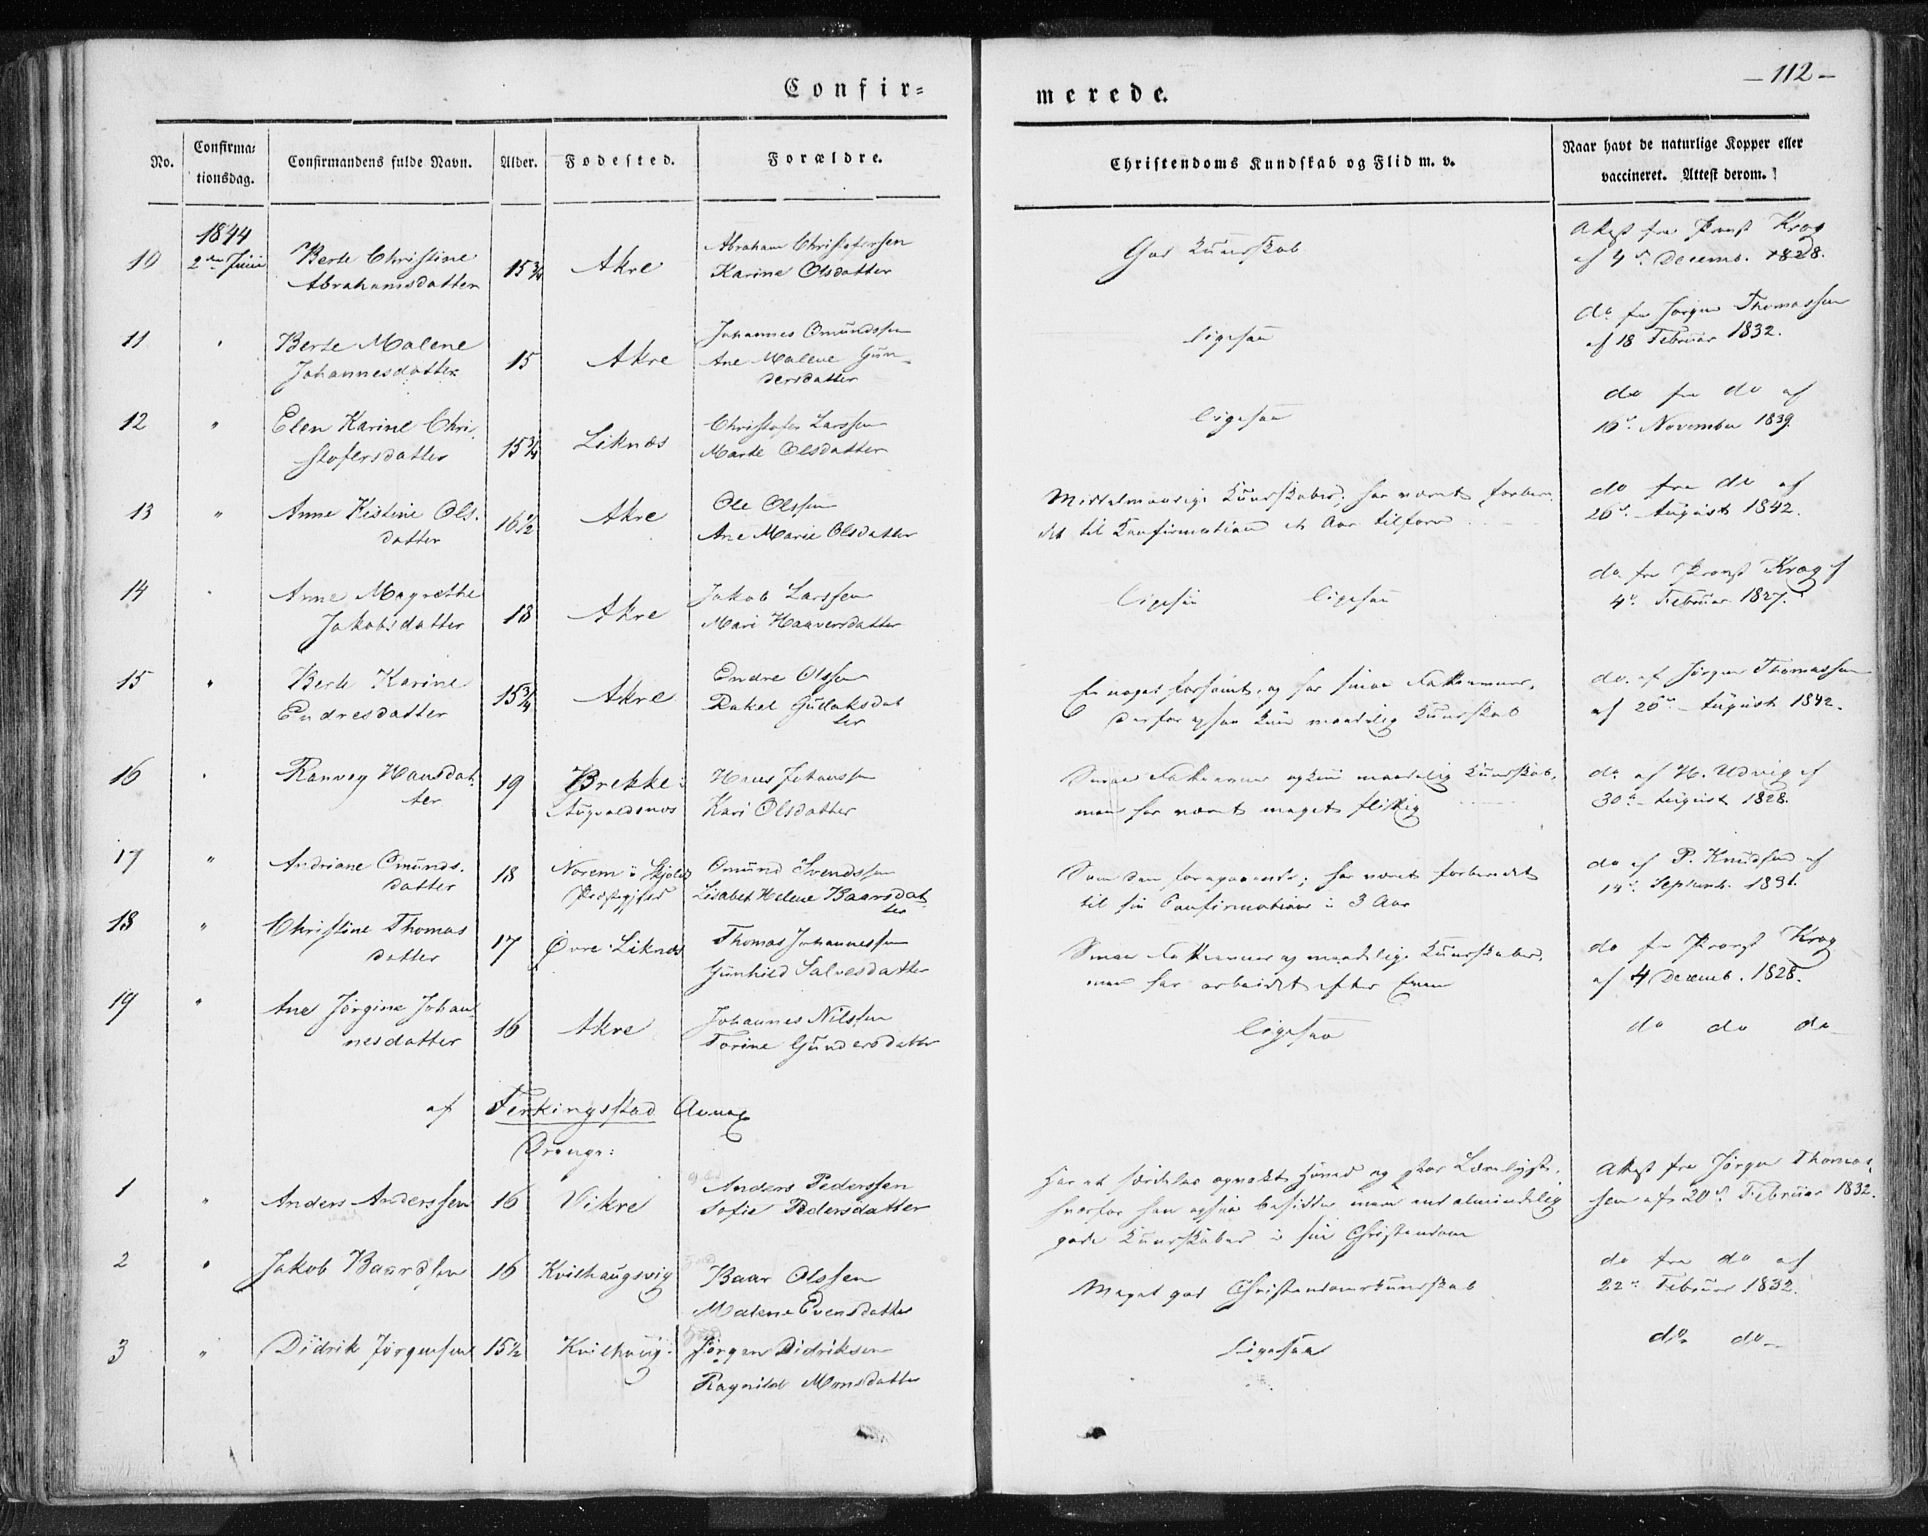 - 112 -
Confir=
merede.
No.
Confirma:
tionsdag.
Confirmandens fulde Navn.
Alder.
Fødested.
Forældre.
Christendoms Kundskab og Flid m. v.
Naar havt de naturlige Kopper eller
vaccineret. Attest derom.
1844
10
2den Juni
Berte Christine
Abrahamsdatter
15 3/4
Akre
Abraham Christofersen
Karine Olsdatter
God Kundskab
Attest fra Provst Krog
af 4de Decemb. 1828.
11
Berte Malene
Johannesdatter
15
Akre
Johannes Omundssen
Ane Malene Gun-
dersdatter
Ligesaa
do fra Jørgen Thomassen
af 18 Februar 1832.
12
"
Elen Karine Chri-
stofersdatter
15 3/4
Liknæs
Christofer Larssen
Marte Olsdatter
Ligesaa
do fra do af
16de November 1839.
13
"
Anne Kistine Ols-
datter
16 1/2
Akre
Ole Olssen
Ane Marie Olsdatter
Middelmaadige Kundskaber; har været forbere-
det til Confirmation et Aar tilforn
do fra do af
26de August 1842.
14
"
Anne Magrethe
Jakobsdatter
18
Akre
Jakob Larssen
Mari Haaversdatter
Ligesaa Ligesaa
do fra Provst Krog af
4de Februar 1827.
15
"
Berte Karine
Endresdatter
15 3/4
Akre
Endre Olssen
Rakel Gullaksdat
ter
Er noget forsømt, og har smaa Fatteevner,
derfor ogsaa kun maadelig Kundskab
do. af Jørgen Thomassen
af 26de August 1842.
16
"
Ranvey Hansdat-
ter
19
Brekke:
Augvaldsnæs
Hans Johanssen
Kari Olsdatter
Smaa Fatteevner og kun maadelig Kundskab,
men har været meget flittig
do af H. Udvig af
30te August 1828.
17
"
Andriane Omunds-
datter
18
Norem i Skjolds
Præstegjeld
Omund Svendssen
Lisabet Helene Baarsdat
ter
Som den foregaaende; har været forberedet
til sin Confirmation i 3 Aar
do af P. Knudsen af
14de Septemb. 1831.
18
"
Christine Thomas
datter
17
Øvre Liknæs
Thomas Johannessen
Gunhild Salvesdatter
Smaa Fatteevner og maadelige Kundskaber,
men har arbeidet efter Evne
do fra Provst Krog
af 4 Decemb. 1828.
19
"
Ane Jørgine Johan-
nesdatter
16
Akre
Johannes Nilssen
Torine Gundersdatter
Ligesaa
do do do
af Ferkingstad Annex
Drenge:
1
"
Anders Anderssen
16
Vikre
Anders Pederssen
Sofie Pedersdatter
Har et særdeles opvakt Hoved og stor Lærelyst,
hvorfor han ogsaa besidder mere end almindelig
gode Kundskaber i sin Christendom
Attest fra Jørgen Thomas-
sen af 20de Februar 1832.
2
"
Jakob Baardsen
16
Kvilhaugsvig
Baar Olssen
Malene Evensdatter
Meget god Christendomskundskab
do fra do af
22de Februar 1832.
3
"
Didrik Jørgensen
15 1/2
Kvilhovig:
Jørgen Didriksen
Ragnild Monsdatter
Ligesaa
do do